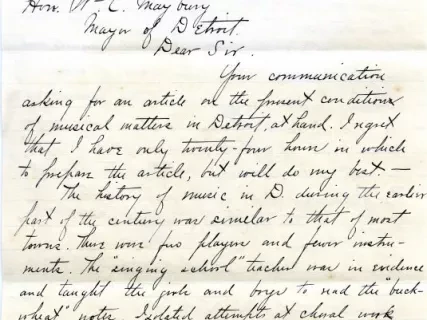 Hon. Wm. C. Maybury
Mayor of Detroit.
Dear Sir.
Your communication
asking for an article on the present condition
of musical matters in Detroit, at hand. I regret
that I have only twenty-four hours in which
to prepare the article, but will do my best. —
The history of music in D. during the earlier
part of the century was similar to that of most
towns. There were few players and fewer instru-
ments. The "singing school" teacher was in evidence
and taught the girls and boys to read the "buck-
wheat" notes. Isolated attempts at choral work